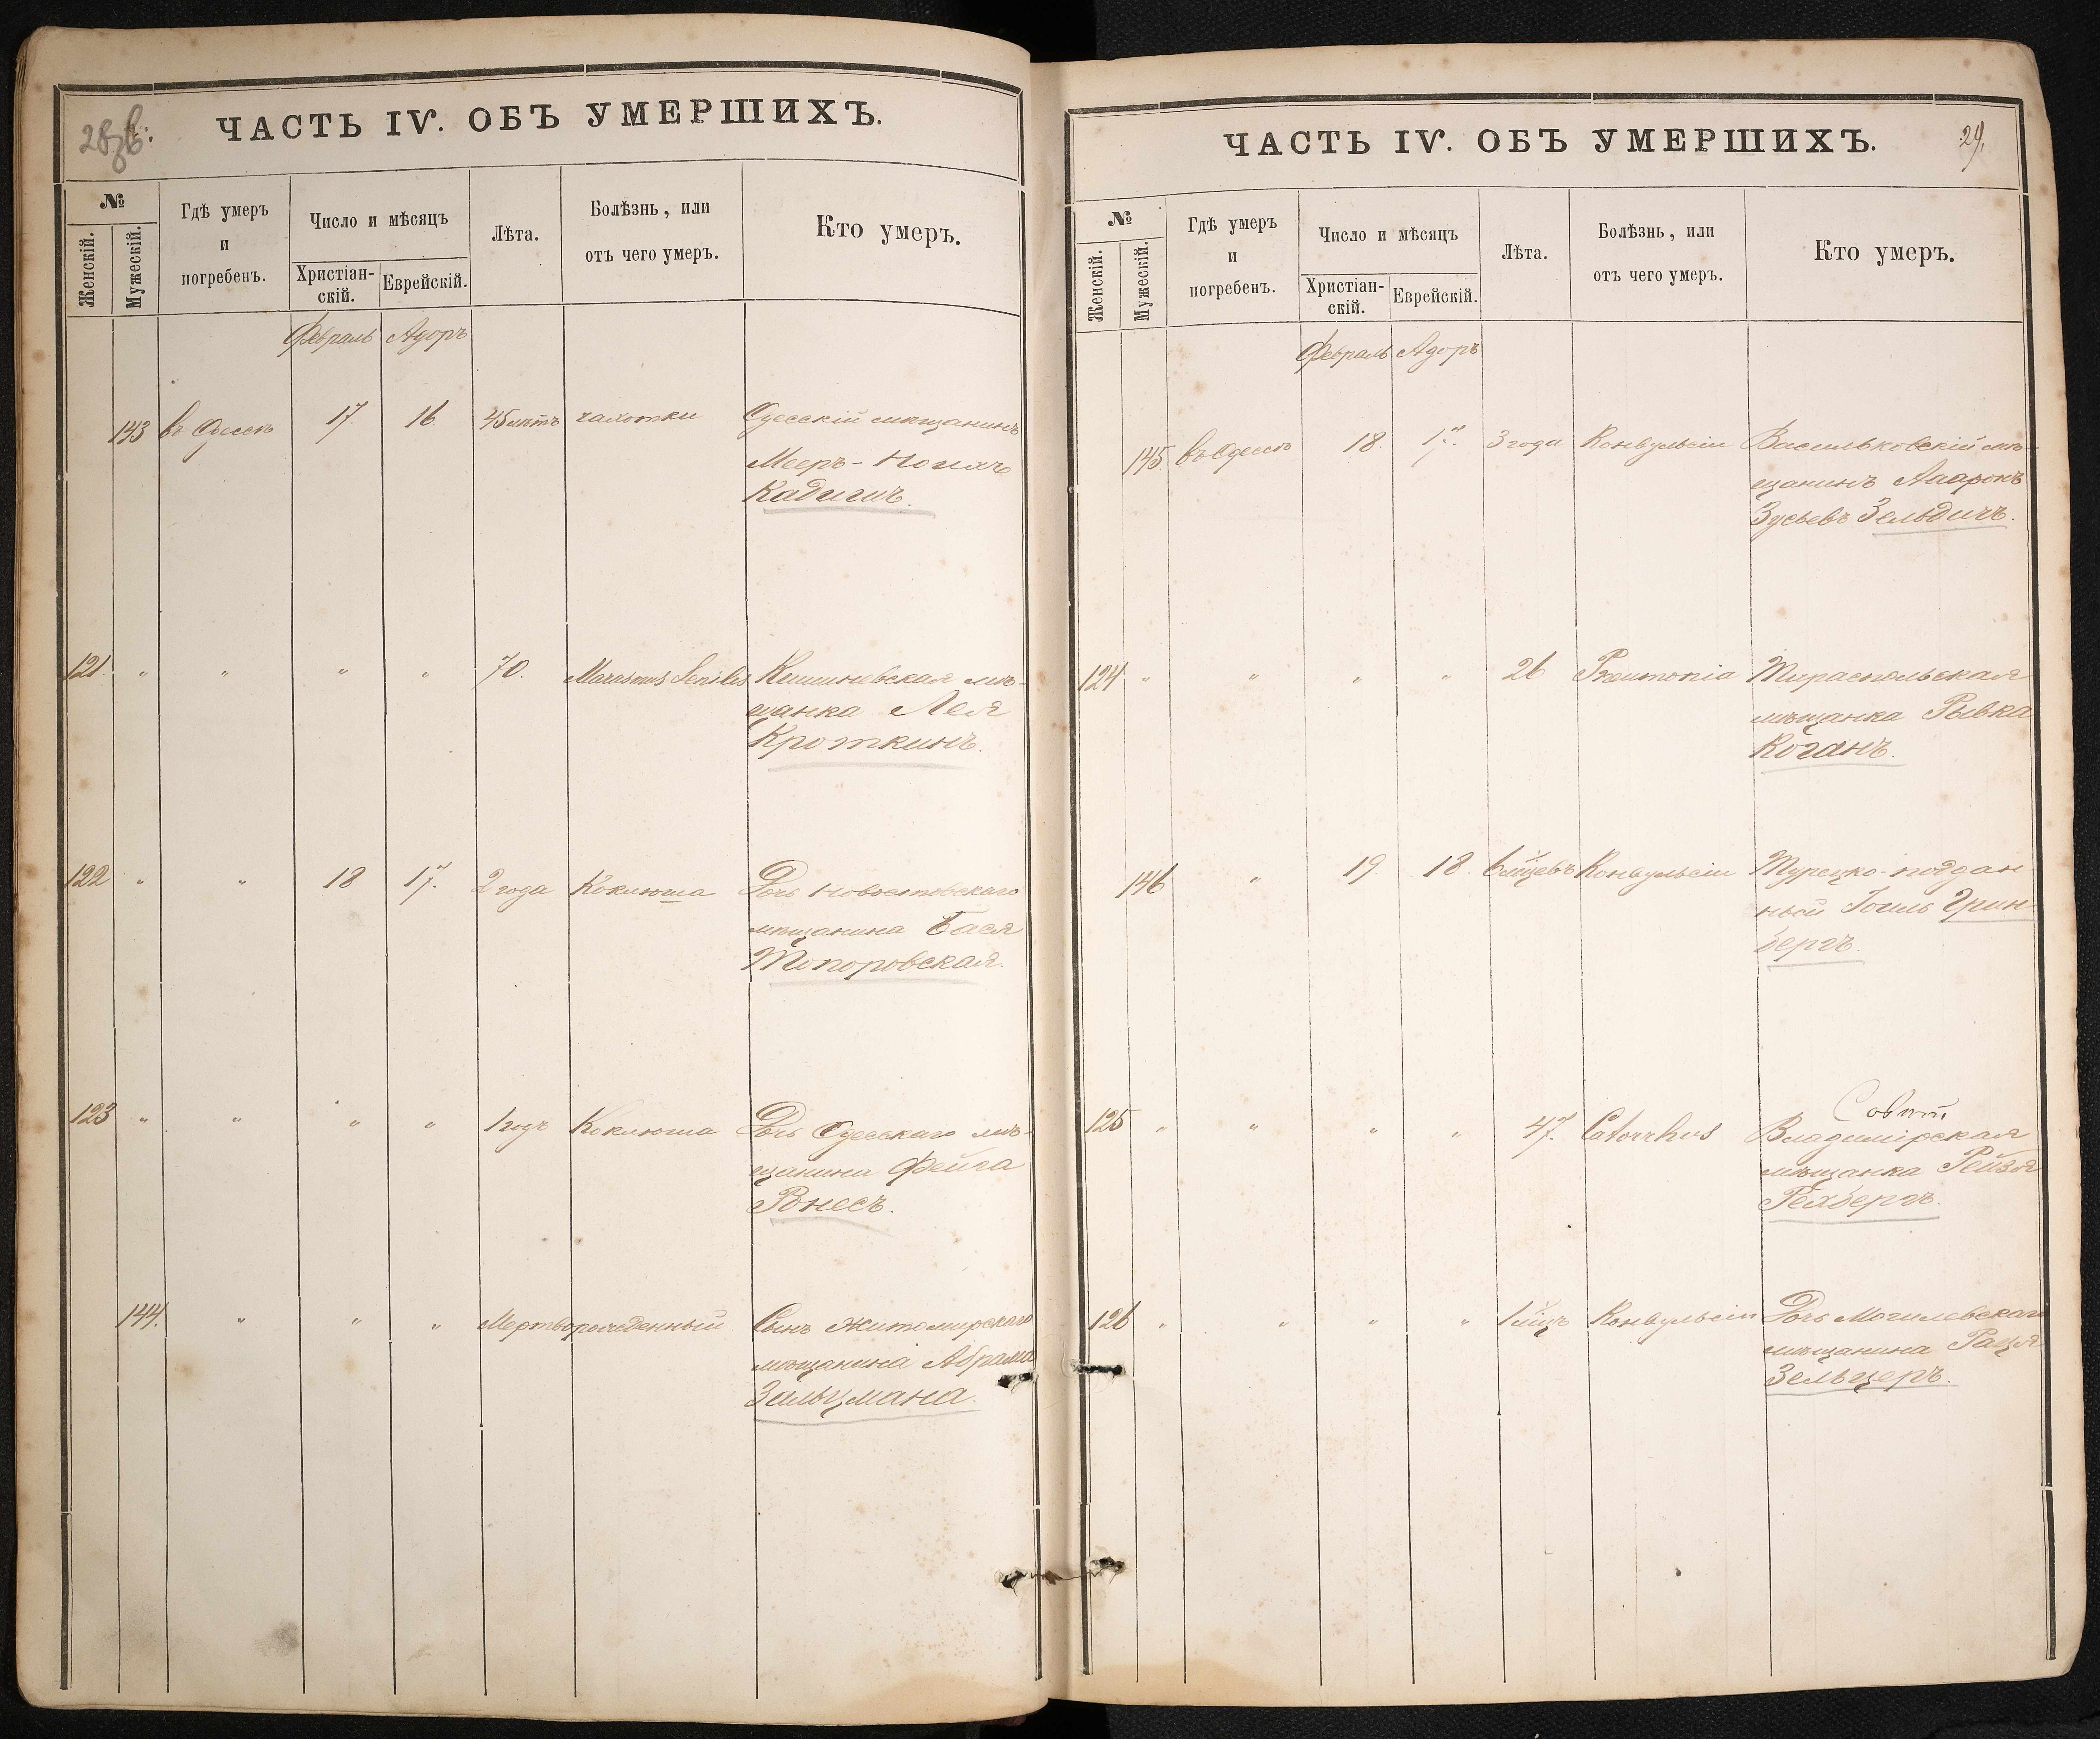 ЧАСТЬ IV. ОБЪ УМЕРШИХЪ.
№
Женскій.
Мужескій.
Гдѣ умеръ
и
погребенъ.
Число и мѣсяцъ
Христіан-
скій.
Еврейскій.
Лѣта.
Болѣзнь, или
отъ чего умеръ.
Кто умеръ.
Февраль Адоръ
143 въ Одессѣ 17. 16 45 лѣтъ чахотки Одесскій мѣщанинъ
Мееръ-
Кадигъ.
121. " " " " 70. Marasmus Senilis Кишиневская мѣ-
щанка Лея
Кроткинъ.
122 " " 18 17. 2 года Коклюша Дочь
мѣщанина Бася
Топоровская.
123 " " " " 1 годъ Коклюша Дочь Одесскаго мѣ-
щанина Фейга
144. " " " Мертворожденный Сынъ Житомирскаго
мѣщанина Абрама
Зальцмана.
ЧАСТЬ IV. ОБЪ УМЕРШИХЪ.
29,
№
Женскій.
Мужескій.
Гдѣ умеръ
и
погребенъ.
Число и мѣсяцъ
Христіан-
скій.
Еврейскій.
Лѣта.
Болѣзнь, или
отъ чего умеръ.
Кто умеръ.
Февраль Адоръ
145 въ Одессѣ 18. 17. 3 года Конвульсіи Васильковскій мѣ-
щанинъ Ааронъ
Зусьевъ Зельдичъ.
124 " " " " 26 Pneumonia Тираспольская
мѣщанка Рывка
Коганъ.
146 " 19. 18. 6 мцевъ Конвульсіи Турецко-поддан
ный Іоиль Грин
бергъ.
125 " " " " 47. Catarrhus Владимірская
мѣщанка Рейзя
Рехбергъ.
126 " " " " 1 мцъ Конвульсіи Дочь Могилевскаго
мѣщанина
Зельцеръ.